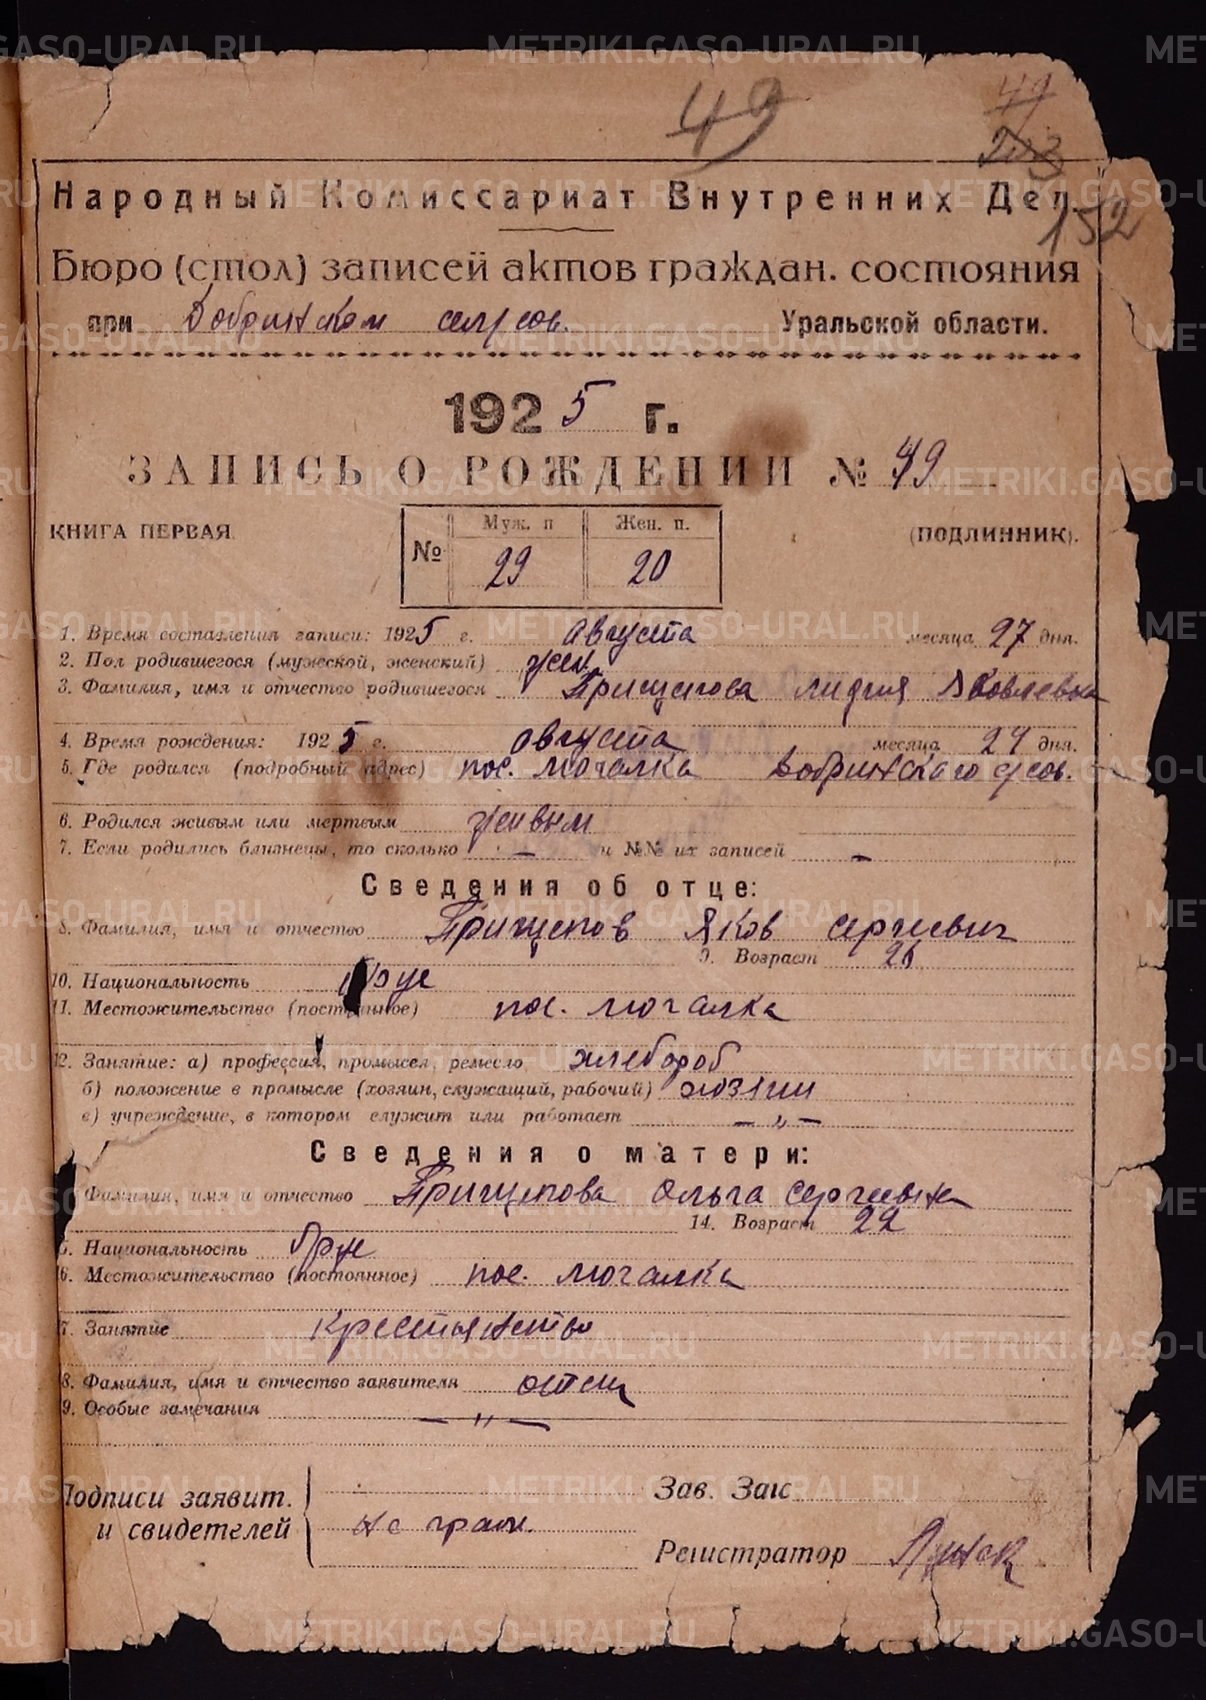 49
49
203
152
Народный Комиссариат Внутренних Дел
Бюро (стол) записей актов граждан. состояния
при Добринском сельсов. Уральской области.
1925 г.
ЗАПИСЬ О РОЖДЕНИИ № 49
КНИГА ПЕРВАЯ (ПОДЛИННИК).
№ Муж. п Жен. п.
29 20
1. Время составления записи: 1925 г. Августа месяца 27 дня.
2. Пол родившегося (мужской, женский) жен.
3. Фамилия, имя и отчество родившегося Прищепова Лидия Яковлевна
4. Время рождения: 1925 г. августа месяца 24 дня.
5. Где родился (подробный адрес) пос. Мочалка Добринскаго с/сов.
6. Родился живым или мертвым живым
7. Если родились близнецы, то сколько — и №№ их записей —
Сведения об отце:
8. Фамилия, имя и отчество Прищепов Яков Сергиевич
9. Возраст 26
10. Национальность рус
11. Местожительство (постоянное) пос. Мочалка
12. Занятие: а) профессия, промысел, ремесло хлебороб
б) положение в промысле (хозяин, служащий, рабочий) хозяин
в) учреждение, в котором служит или работает — „ —
Сведения о матери:
Фамилия, имя и отчество Прищепова Ольга Сергиевна
14. Возраст 22
5. Национальность Рус
6. Местожительство (постоянное) пос. Мочалка
7. Занятие крестьянство
8. Фамилия, имя и отчество заявителя отец
9. Особые замечания — „ —
Подписи заявит. Зав. Загс
и свидетелей не грам.
Регистратор
METRIKI.GASO-URAL.RU